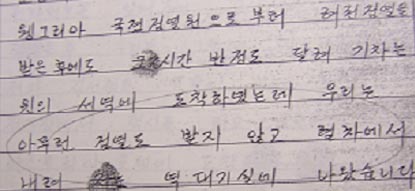 웽그리아 국경검열원으로 부터 려권검열을
받은 후에도 시간 반정도 달려 기차는
윈의 도착하였는데 우리는
아무런 검열도 받지 않고 렬차에서
내려 역 대기실에 나왔습니다